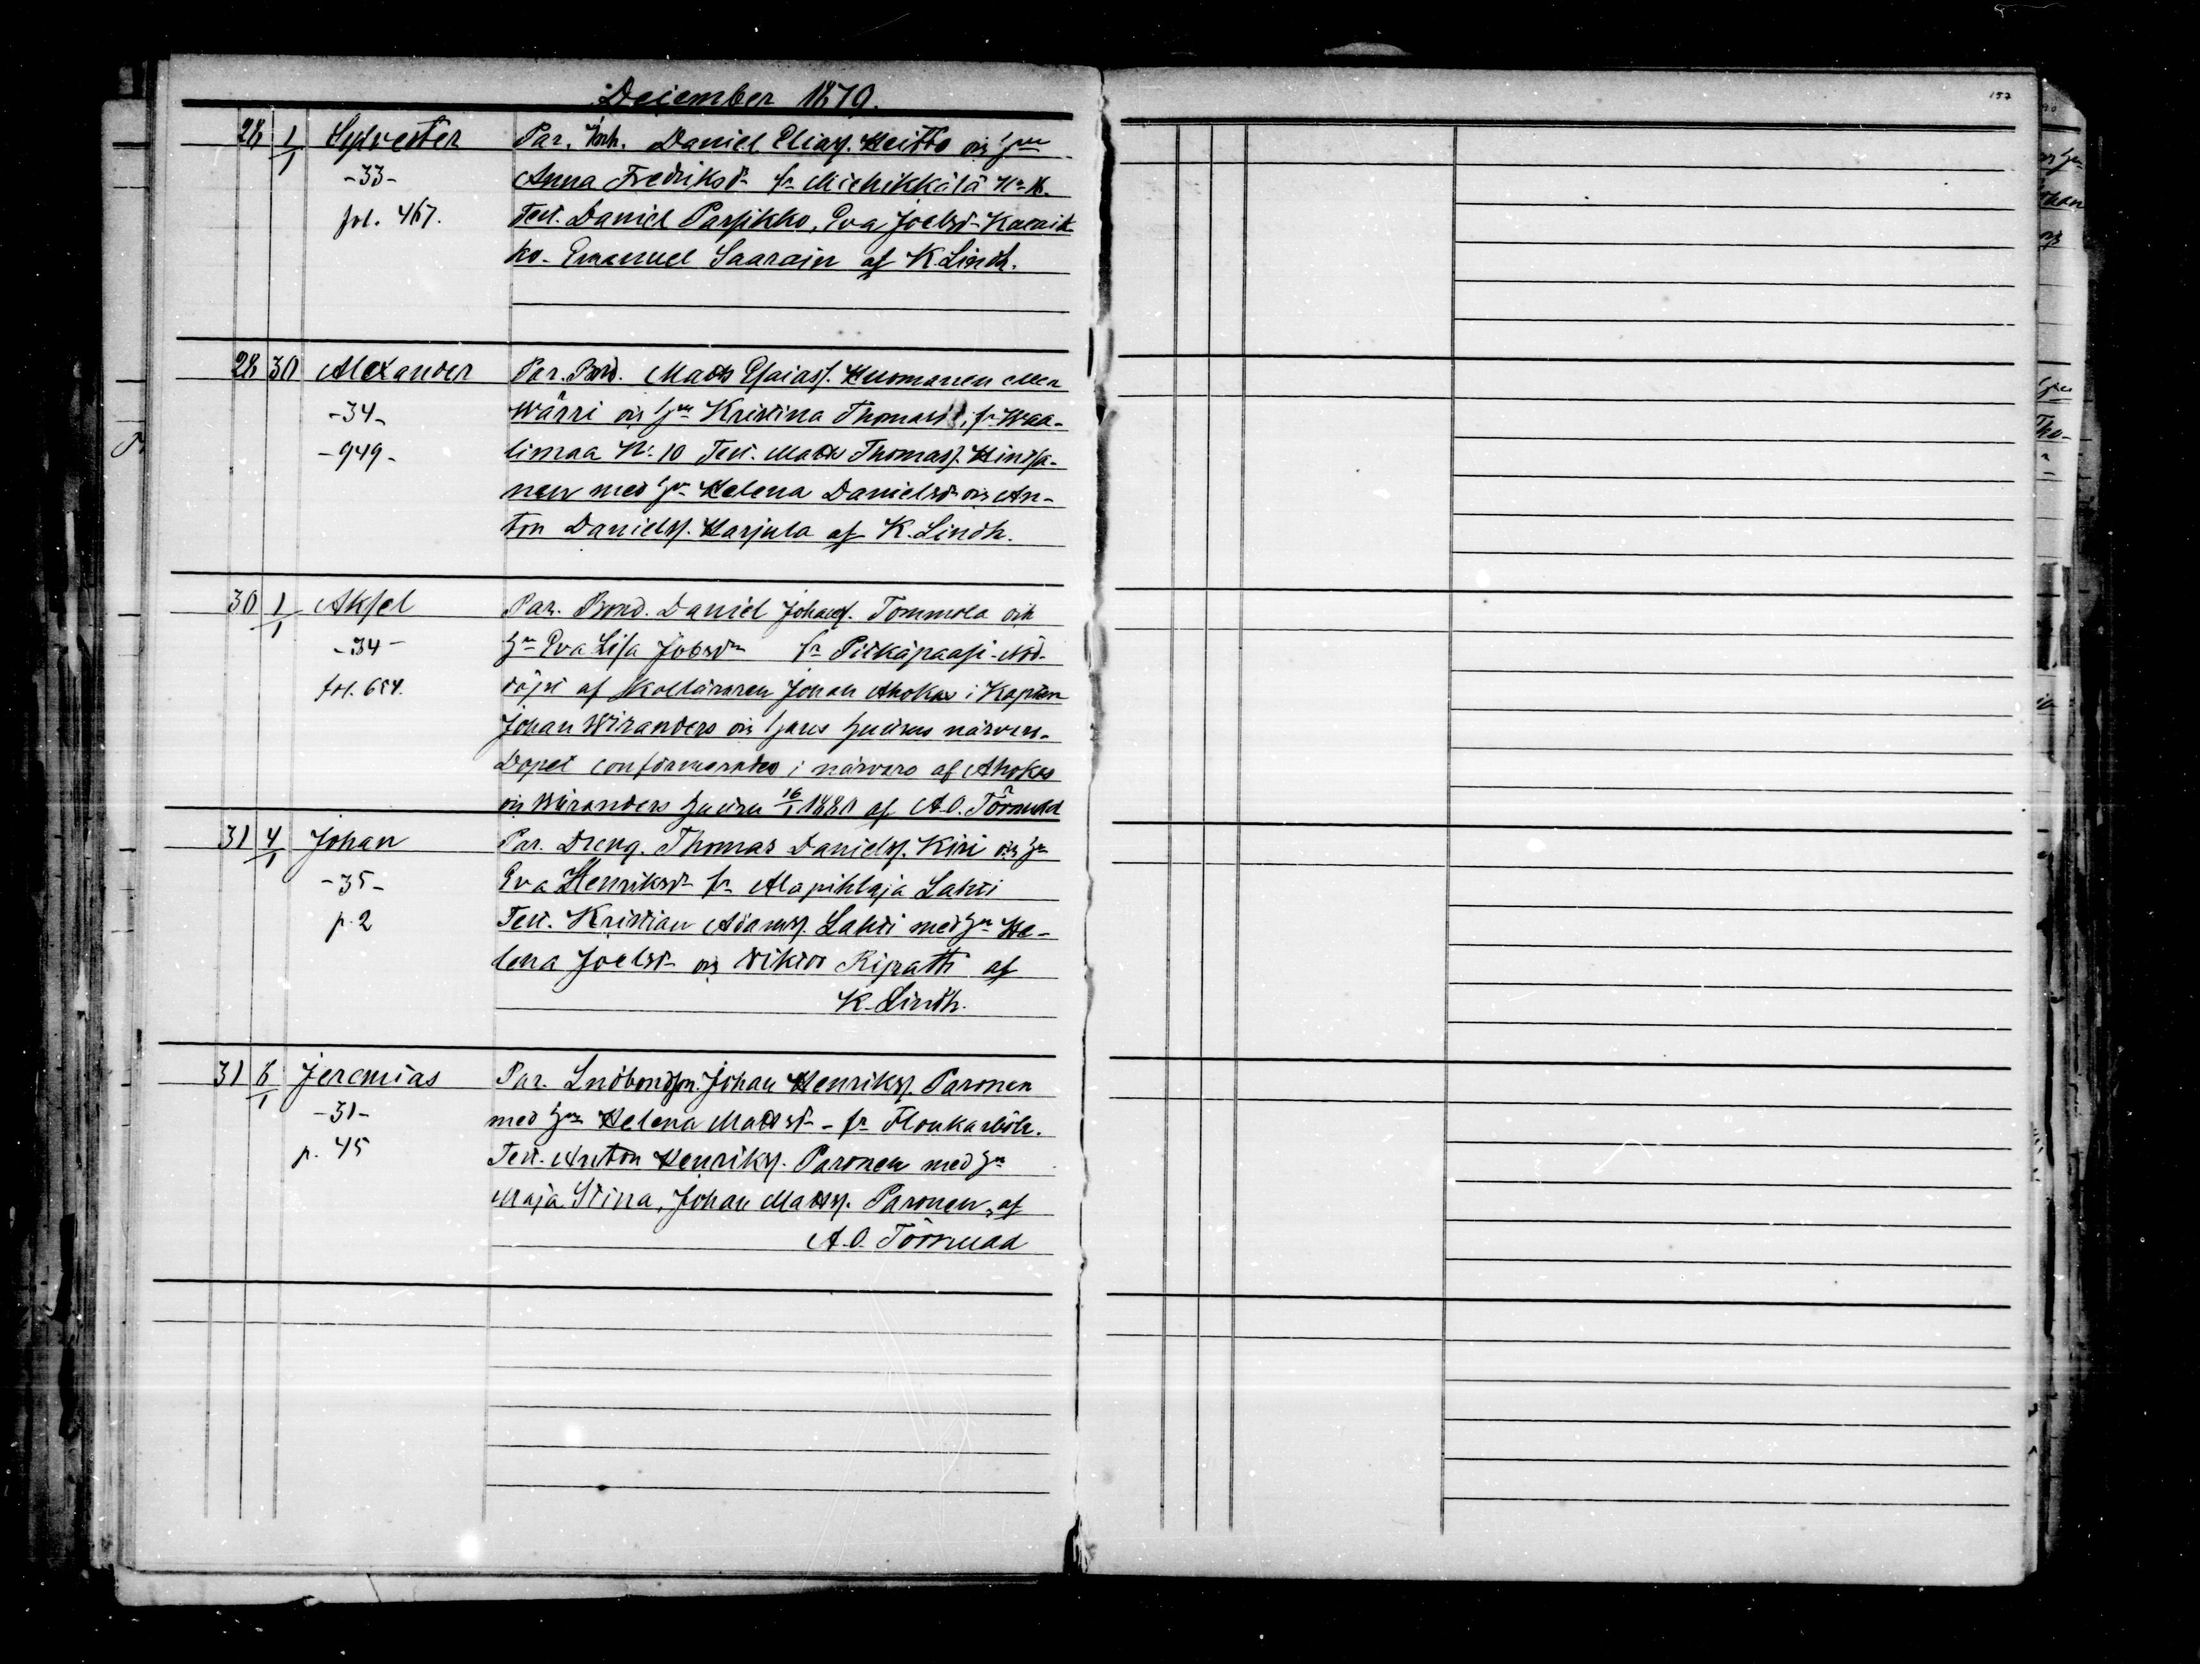 December 1879.
157
28 1/1 Sylvester Par. Inh. Daniel Eliass. Heitto och hu
-33- Anna Fredriksdr fr Miehikkälä No
fol. 467. Test. Daniel Parsikko, Eva Joelsdr Kacaik-
ko. Emanuel Saarain af K. Lindh.
28 30 Alexander Par. Bond. Matts Esaiass. Huomanen eller
-34- Wärri och hu Kristina Thomasd, fr Waa-
-949- limaa No: 10 Test. Matts Thomass. Hindsa-
nen med hu Helena Danielsdr och An-
ton Danielss. Harjula af K. Lindh.
30 1/1 Aksel Par. Bond. Daniel Johans. Tommola och
-34- hu Eva Lisa Jobsdr fr Pitkäpaasi. Nöd-
fol. 684. döpt af Skolläraren Johan Ahokas i Kapten
Johan Wiranders och hans hustrus närvaro.
Dopet conformerades i närvaro af Ahokas
och Wiranders hustru 16/1 1880 af A.O. Törnudd
31 4/1 Johan Par. Dreng. Thomas Danielss. Kiri och hu
-35- Eva Henriksdr fr Alapihlaja Lahti
p. 2 Test. Kristian Adamss. Lahti med hu He-
lena Joelsdr och Viktor Ripatti af
K. Lindh.
31 6/1 Jeremias Par. Lndbondson. Johan Henrikss. Paronen
-31- med hu Helena Mattsdr - fr
p. 45 Test. Anton Henrikss. Paronen med hu
Maja Stina, Johan Matss. Paronen, af
A.O. Törnudd